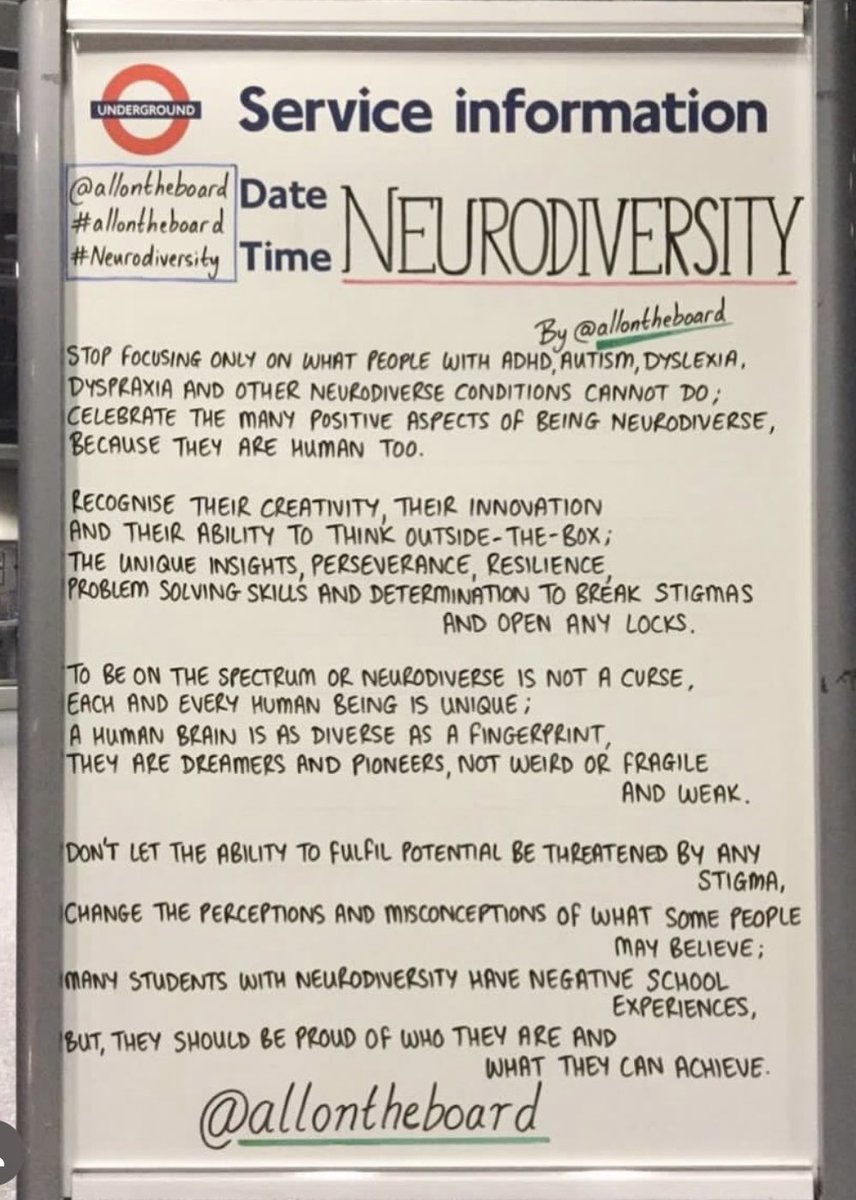 UNDERGROUND
Service information
@allontheboard
#allontheboard
#Neurodiversity
Date
Time
NEURODIVERSITY
By @allontheboard
STOP FOCUSING ONLY ON WHAT PEOPLE WITH ADHD, AUTISM, DYSLEXIA,
DYSPRAXIA AND OTHER NEURODIVERSE CONDITIONS CANNOT DO;
CELEBRATE THE MANY POSITIVE ASPECTS OF BEING NEURODIVERSE,
BECAUSE THEY ARE HUMAN TOO.
RECOGNISE THEIR CREATIVITY, THEIR INNOVATION
AND THEIR ABILITY TO THINK OUTSIDE-THE-BOX;
THE UNIQUE INSIGHTS, PERSEVERANCE, RESILIENCE,
PROBLEM SOLVING SKILLS AND DETERMINATION TO BREAK STIGMAS
AND OPEN ANY LOCKS.
TO BE ON THE SPECTRUM OR NEURODIVERSE IS NOT A CURSE,
EACH AND EVERY HUMAN BEING IS UNIQUE;
A HUMAN BRAIN IS AS DIVERSE AS A FINGERPRINT,
THEY ARE DREAMERS AND PIONEERS, NOT WEIRD OR FRAGILE
AND WEAK.
DON'T LET THE ABILITY TO FULFIL POTENTIAL BE THREATENED BY ANY
STIGMA,
CHANGE THE PERCEPTIONS AND MISCONCEPTIONS OF WHAT SOME PEOPLE
MAY BELIEVE;
MANY STUDENTS WITH NEURODIVERSITY HAVE NEGATIVE SCHOOL
EXPERIENCES,
BUT, THEY SHOULD BE PROUD OF WHO THEY ARE AND
WHAT THEY CAN ACHIEVE.
@allontheboard